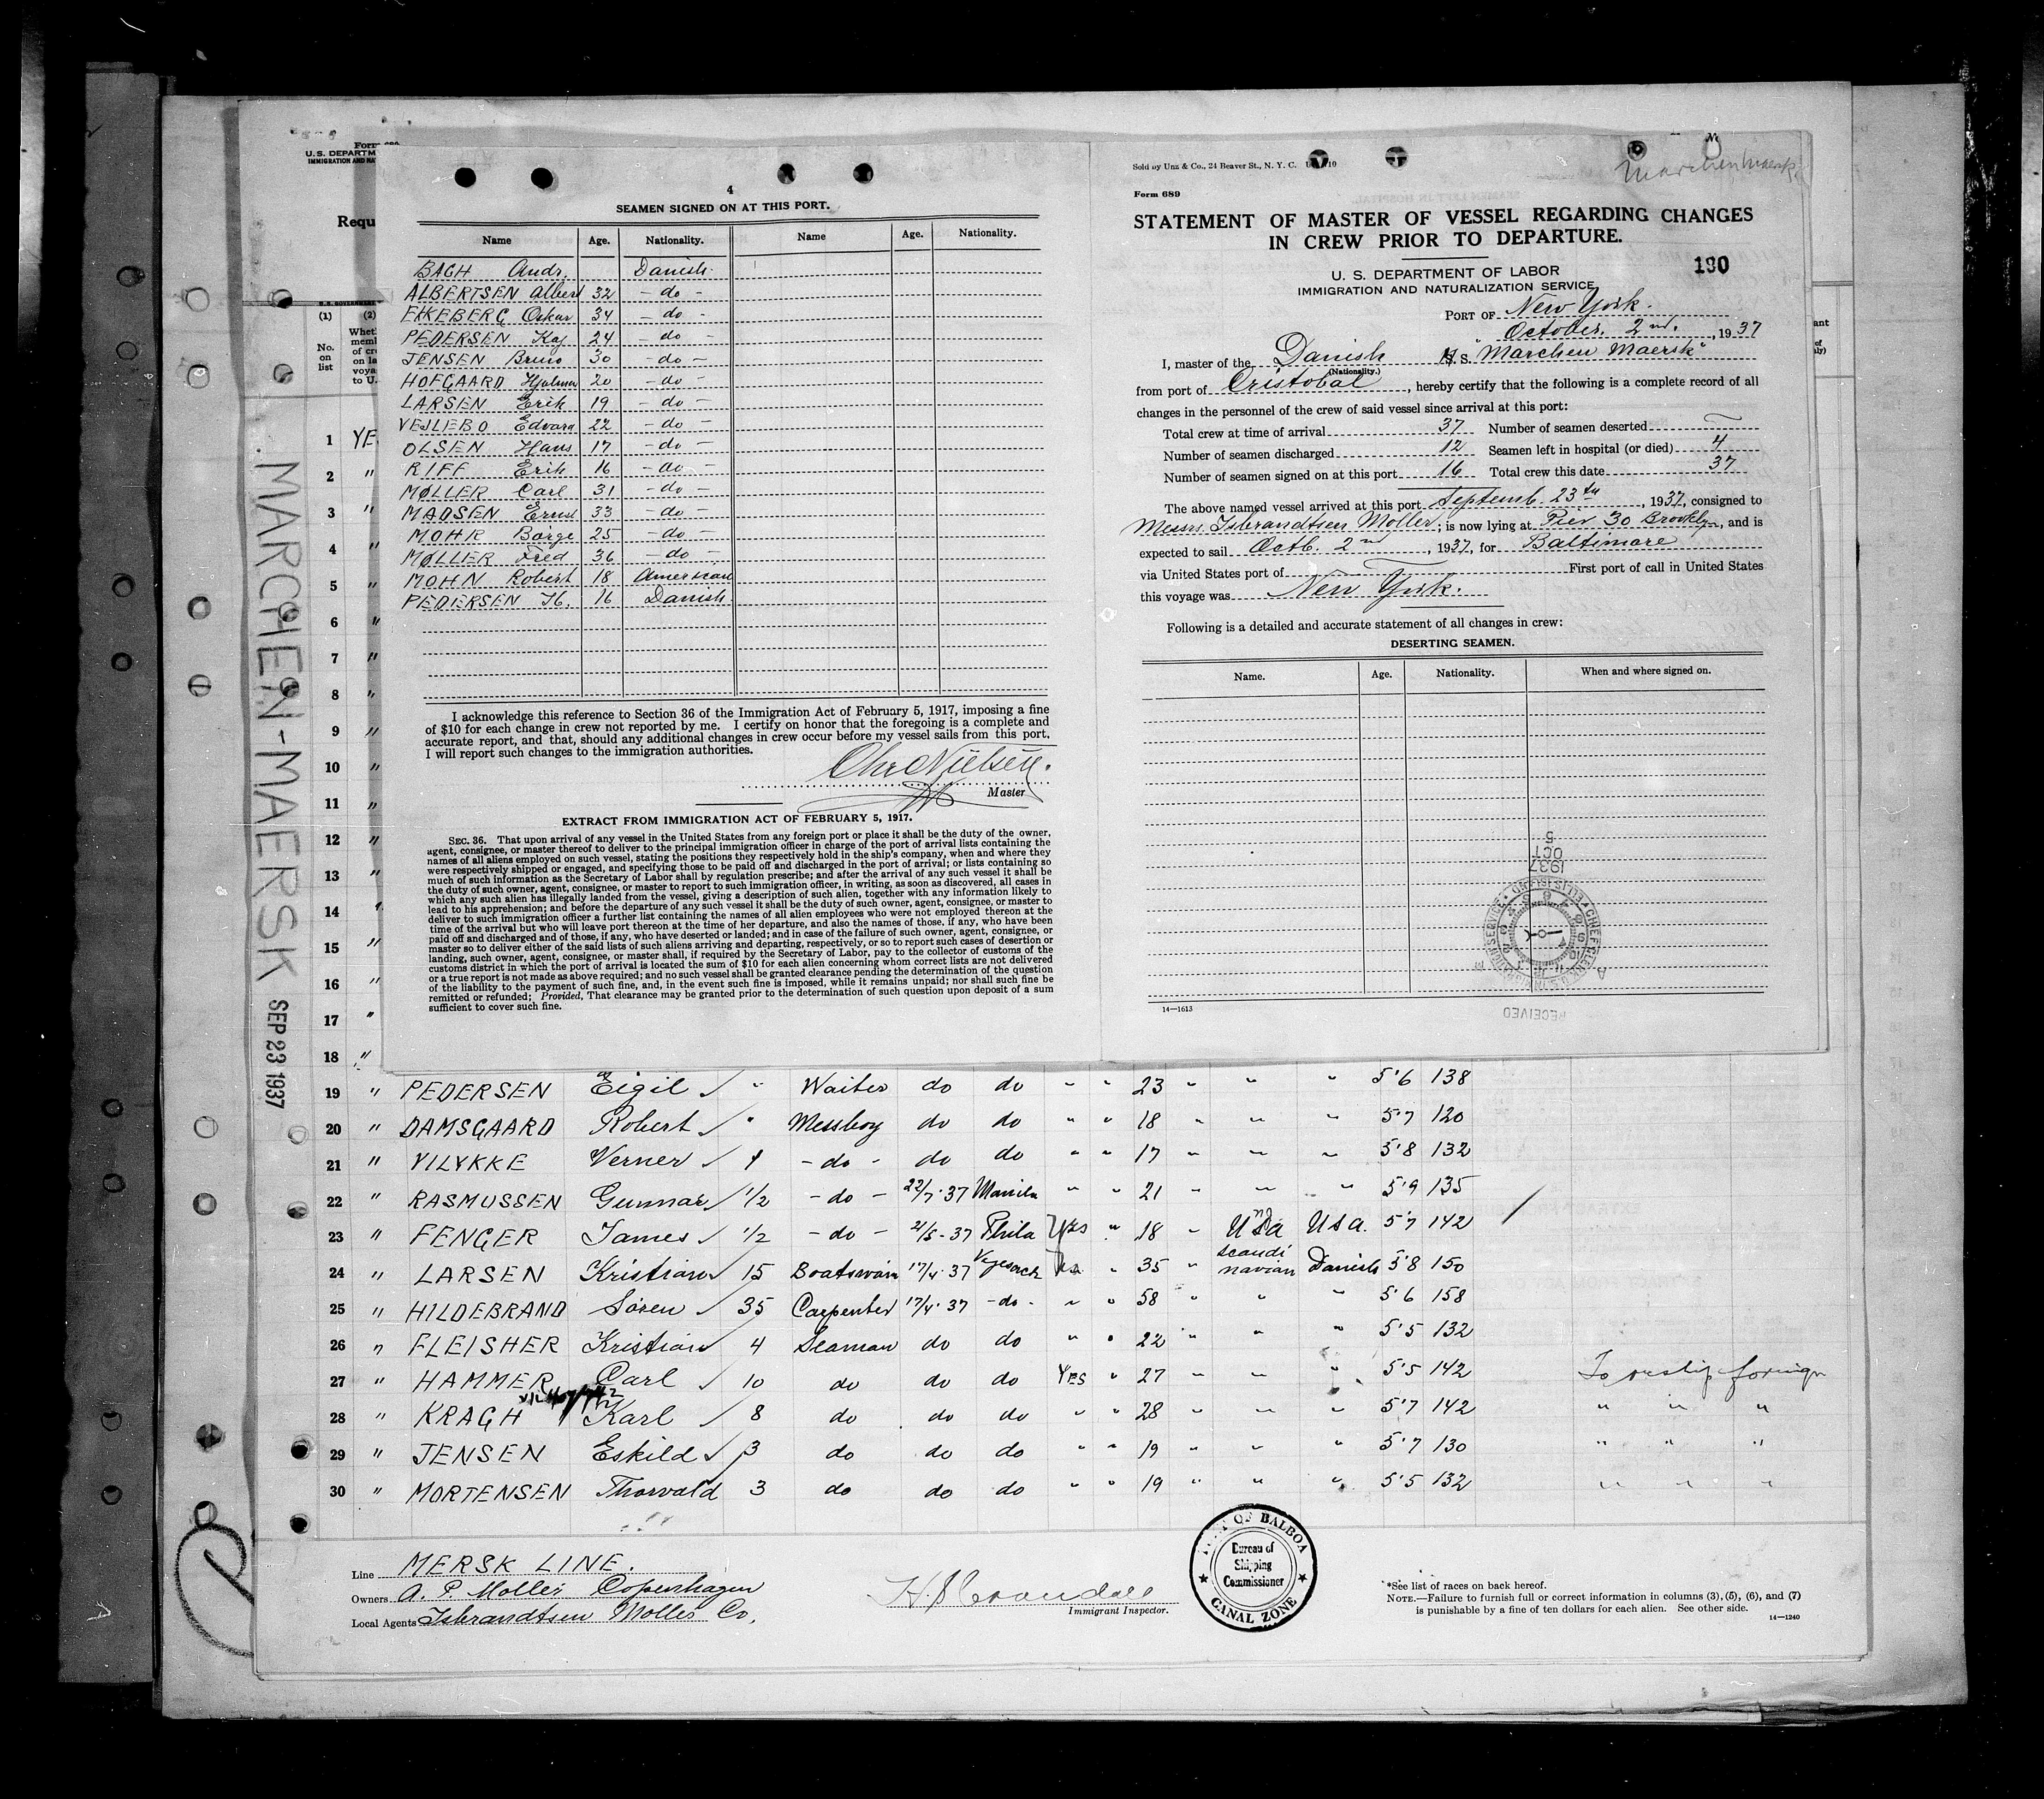 Form 689
U. S. DEPARTM
IMMIGRATION AND NA
Requ
(1) (2)
No. on list
Whet
memb
of cre
on la
voya
to U.
MARCHEN-MAERSK SEP 23 1937
1 YE
2 "
3 "
4 "
5 "
6 "
7 "
8 "
9 "
10 "
11 "
12 "
13 "
14 "
15 "
16 "
17 "
18 "
4
SEAMEN SIGNED ON AT THIS PORT.
Name Age. Nationality. Name Age. Nationality.
BAGH Andr. Danish
ALBERTSEN Albert 32 - do -
EKKEBERG Oskar 34 - do -
PEDERSEN Kaj 24 - do -
JENSEN Bruno 30 - do -
HOFGAARD Hjalmar 20 - do -
LARSEN Erik 19 - do -
VEJLEBO Edvard 22 - do -
OLSEN Hans 17 - do -
RIFF Erik 16 - do -
MØLLER Carl 31 - do -
MADSEN Ernst 33 - do -
MOHR Børge 25 - do -
MØLLER Fred 36 - do -
MOHN Robert 18 American
PEDERSEN H. 16 Danish
I acknowledge this reference to Section 36 of the Immigration Act of February 5, 1917, imposing a fine
of $10 for each change in crew not reported by me. I certify on honor that the foregoing is a complete and
accurate report, and that, should any additional changes in crew occur before my vessel sails from this port.
I will report such changes to the immigration authorities.
Chr Nielsen.
Master
EXTRACT FROM IMMIGRATION ACT OF FEBRUARY 5, 1917.
SEC. 36. That upon arrival of any vessel in the United States from any foreign port or place it shall be the duty of the owner,
agent, consignee, or master thereof to deliver to the principal immigration officer in charge of the port of arrival lists containing the
names of all aliens employed on such vessel, stating the positions they respectively hold in the ship's company, when and where they
were respectively shipped or engaged, and specifying those to be paid off and discharged in the port of arrival; or lists containing so
much of such information as the Secretary of Labor shall by regulation prescribe; and after the arrival of any such vessel it shall be
the duty of such owner, agent, consignee, or master to report to such immigration officer, in writing, as soon as discovered, all cases in
which any such alien has illegally landed from the vessel, giving a description of such alien, together with any information likely to
lead to his apprehension; and before the departure of any such vessel it shall be the duty of such owner, agent, consignee, or master to
deliver to such immigration officer a further list containing the names of all alien employees who were not employed thereon at the
time of the arrival but who will leave port thereon at the time of her departure, and also the names of those, if any, who have been
paid off and discharged and of those, if any, who have deserted or landed; and in case of the failure of such owner, agent, consignee, or
master so to deliver either of the said lists of such aliens arriving and departing, respectively, or so to report such cases of desertion or
landing, such owner, agent, consignee, or master shall, if required by the Secretary of Labor, pay to the collector of customs of the
customs district in which the port of arrival is located the sum of $10 for each alien concerning whom correct lists are not delivered
or a true report is not made as above required; and no such vessel shall be granted clearance pending the determination of the question
of the liability to the payment of such fine, and, in the event such fine is imposed, while it remains unpaid; nor shall such fine be
remitted or refunded; Provided, That clearance may be granted prior to the determination of such question upon deposit of a sum
sufficient to cover such fine.
Sold by Unz & Co., 24 Beaver St., N. Y. C.
Marchen Maersk
Form 689
STATEMENT OF MASTER OF VESSEL REGARDING CHANGES
IN CREW PRIOR TO DEPARTURE.
190
U. S. DEPARTMENT OF LABOR
IMMIGRATION AND NATURALIZATION SERVICE
PORT OF New York.
October. 2nd., 1937
I, master of the Danish M. S. "Marchen Maersk"
(Nationality.)
from port of Cristobal, hereby certify that the following is a complete record of all
changes in the personnel of the crew of said vessel since arrival at this port:
Total crew at time of arrival 37 Number of seamen deserted —
Number of seamen discharged 12 Seamen left in hospital (or died) 4
Number of seamen signed on at this port 16 Total crew this date 37
The above named vessel arrived at this port Septemb. 23th, 1937, consigned to
Messrs. Isbrandtsen Moller; is now lying at Pier 30 Brooklyn, and is
expected to sail Octb. 2nd, 1937, for Baltimore
via United States port of — First port of call in United States
this voyage was New York.
Following is a detailed and accurate statement of all changes in crew:
DESERTING SEAMEN.
Name. Age. Nationality. When and where signed on.
1937
OCT
5
RECEIVED
14—1613
19 " PEDERSEN Eigil " Waiter do do " " 23 " " " 5'6 138
20 " DAMSGAARD Robert " Messboy do do " " 18 " " " 5'7 120
21 " VILYKKE Verner - do - do do " " 17 " " " 5'8 132
22 " RASMUSSEN Gunnar 1/2 - do - 22/7 '37 Manila " " 21 " " " 5'9 135
23 " FENGER James 1/2 - do - 2/5 - 37 Phila Yes " 18 " USA USA. 5'7 142
24 " LARSEN Kristian 15 Boatswain 17/4 '37 Vegesack No " 35 " Scandinavian Danish 5'8 150
25 " HILDEBRAND Søren 35 Carpenter 17/4 '37 - do - " " 58 " " " 5'6 158
26 " FLEISHER Kristian 4 Seaman do do " " 22 " " " 5'5 132
27 " HAMMER Carl 10 do do do YES " 27 " " " 5'5 142 To reship foreign
28 " KRAGH Karl 8 do do do " " 28 " " " 5'7 142 " " "
29 " JENSEN Eskild 3 do do do " " 19 " " " 5'7 130 " " "
30 " MORTENSEN Thorvald 3 do do do " " 19 " " " 5'5 132 " " "
Line MERSK LINE.
Owners A. P. Moller Copenhagen
Local Agents Isbrandtsen Moller Co.
Immigrant Inspector.
PORT OF BALBOA
Bureau of
Shipping
Commissioner
CANAL ZONE
*See list of races on back hereof.
NOTE.—Failure to furnish full or correct information in columns (3), (5), (6), and (7)
is punishable by a fine of ten dollars for each alien. See other side.
14—1240